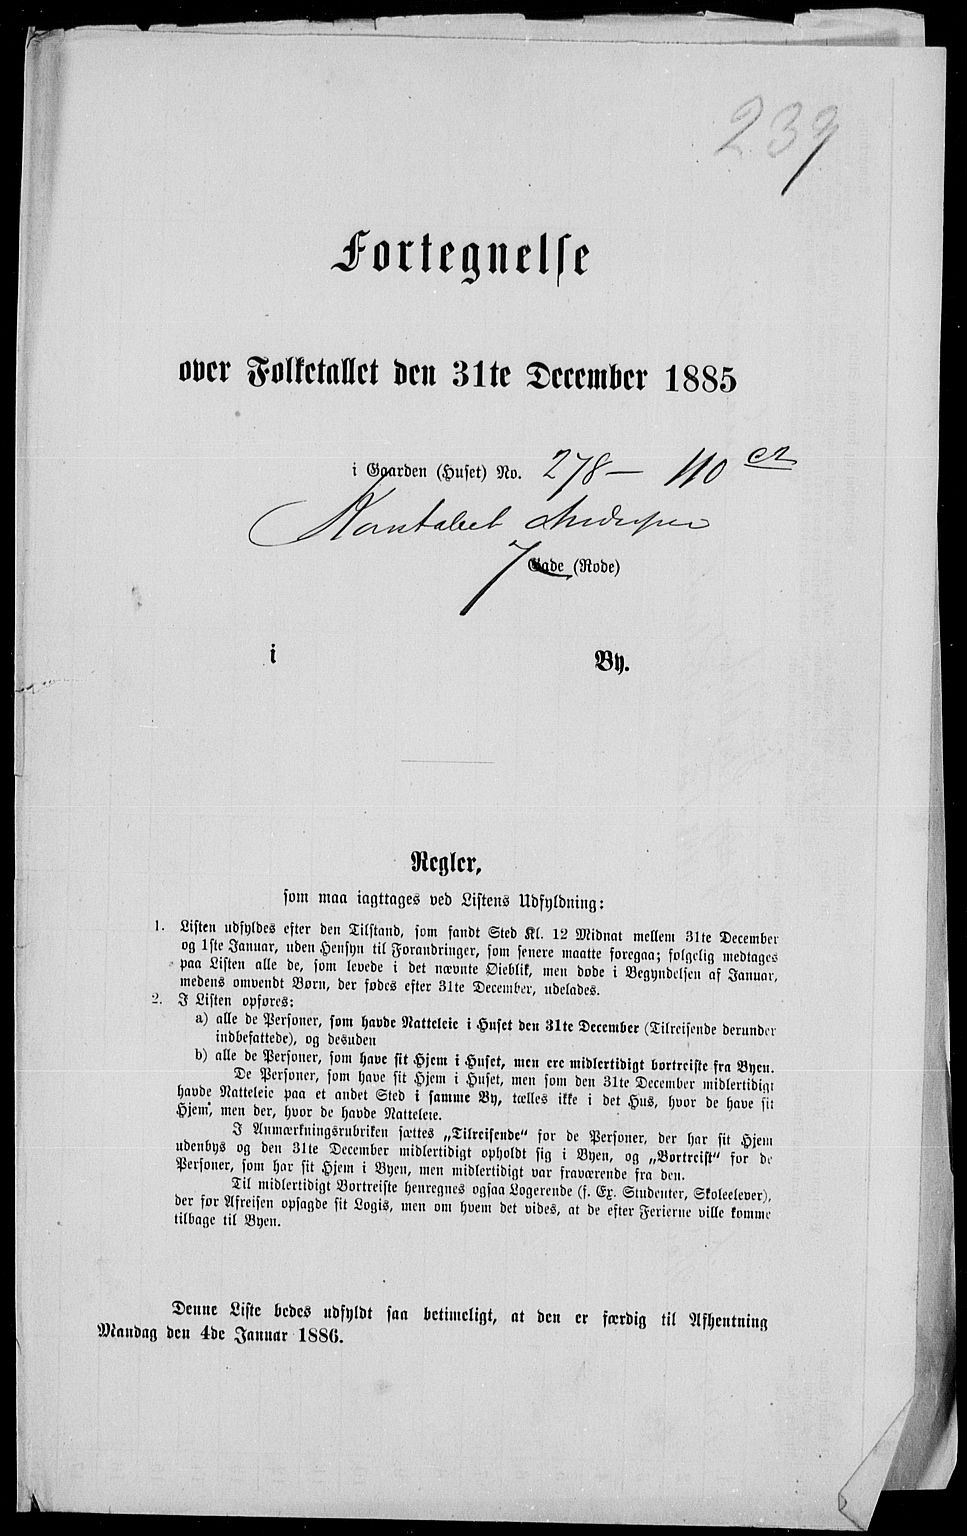 239
Fortegnelse
over Folketallet den 31te December 1885
i Gaarden (Huset) No. 278 – 110
Andersen
7 Gade (Rode)
i By.
Regler,
som maa iagttages ved Listens Udfyldning:
1. Listen udfyldes efter den Tilstand, som fandt Sted Kl. 12 Midnat mellem 31te December
og 1ste Januar, uden Hensyn til Forandringer, som senere maatte foregaa; følgelig medtages
paa Listen alle de, som levede i det nævnte Øieblik, men døde i Begyndelsen af Januar,
medens omvendt Børn, der fødes efter 31te December, udelades.
2. I Listen opføres:
a) alle de Personer, som havde Natteleie i Huset den 31te December (Tilreisende derunder
indbefattede), og desuden
b) alle de Personer, som have sit Hjem i Huset, men ere midlertidigt bortreiste fra Byen.
De Personer, som have sit Hjem i Huset, men som den 31te December midlertidigt
havde Natteleie paa et andet Sted i samme By, tælles ikke i det Hus, hvor de have sit
Hjem, men der, hvor de havde Natteleie.
I Anmærkningsrubriken sættes „Tilreisende“ for de Personer, der har sit Hjem
udenbys og den 31te December midlertidigt opholdt sig i Byen, og „Bortreist“ for de
Personer, som har sit Hjem i Byen, men midlertidigt var fraværende fra den.
Til midlertidigt Bortreiste henregnes ogsaa Logerende (f. Ex. Studenter, Skoleelever),
der før Afreisen opsagde sit Logis, men om hvem det vides, at de efter Ferierne ville komme
tilbage til Byen.
Denne Liste bedes udfyldt saa betimeligt, at den er færdig til Afhentning
Mandag den 4de Januar 1886.